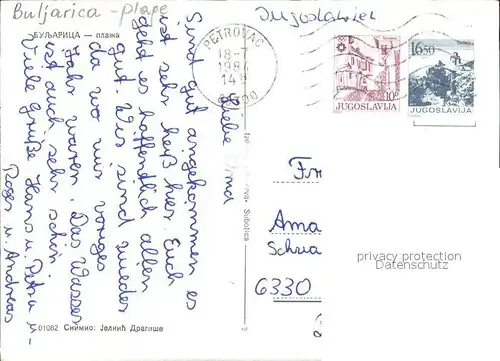 Buljarica - plaže
БУЉАРИЦА — плажа
Jugoslawien
PETROVAC
18-7
198
14
JUGOSLAVIJA
10
16,50
JUGOSLAVIJA
Liebe Oma
Sind gut angekommen es
ist sehr heiß hier. Euch
geht es hoffentlich allen
gut. Wir sind wieder
da wo wir voriges
Jahr waren. Das Wasser
ist auch sehr schön.
Viele Grüße Hans u. Petra u.
Roger u. Andreas
Subotica
01082 Снимио: Јелкић Драгиша
Fr
Ama
Schwa
6330
privacy protection
Datenschutz